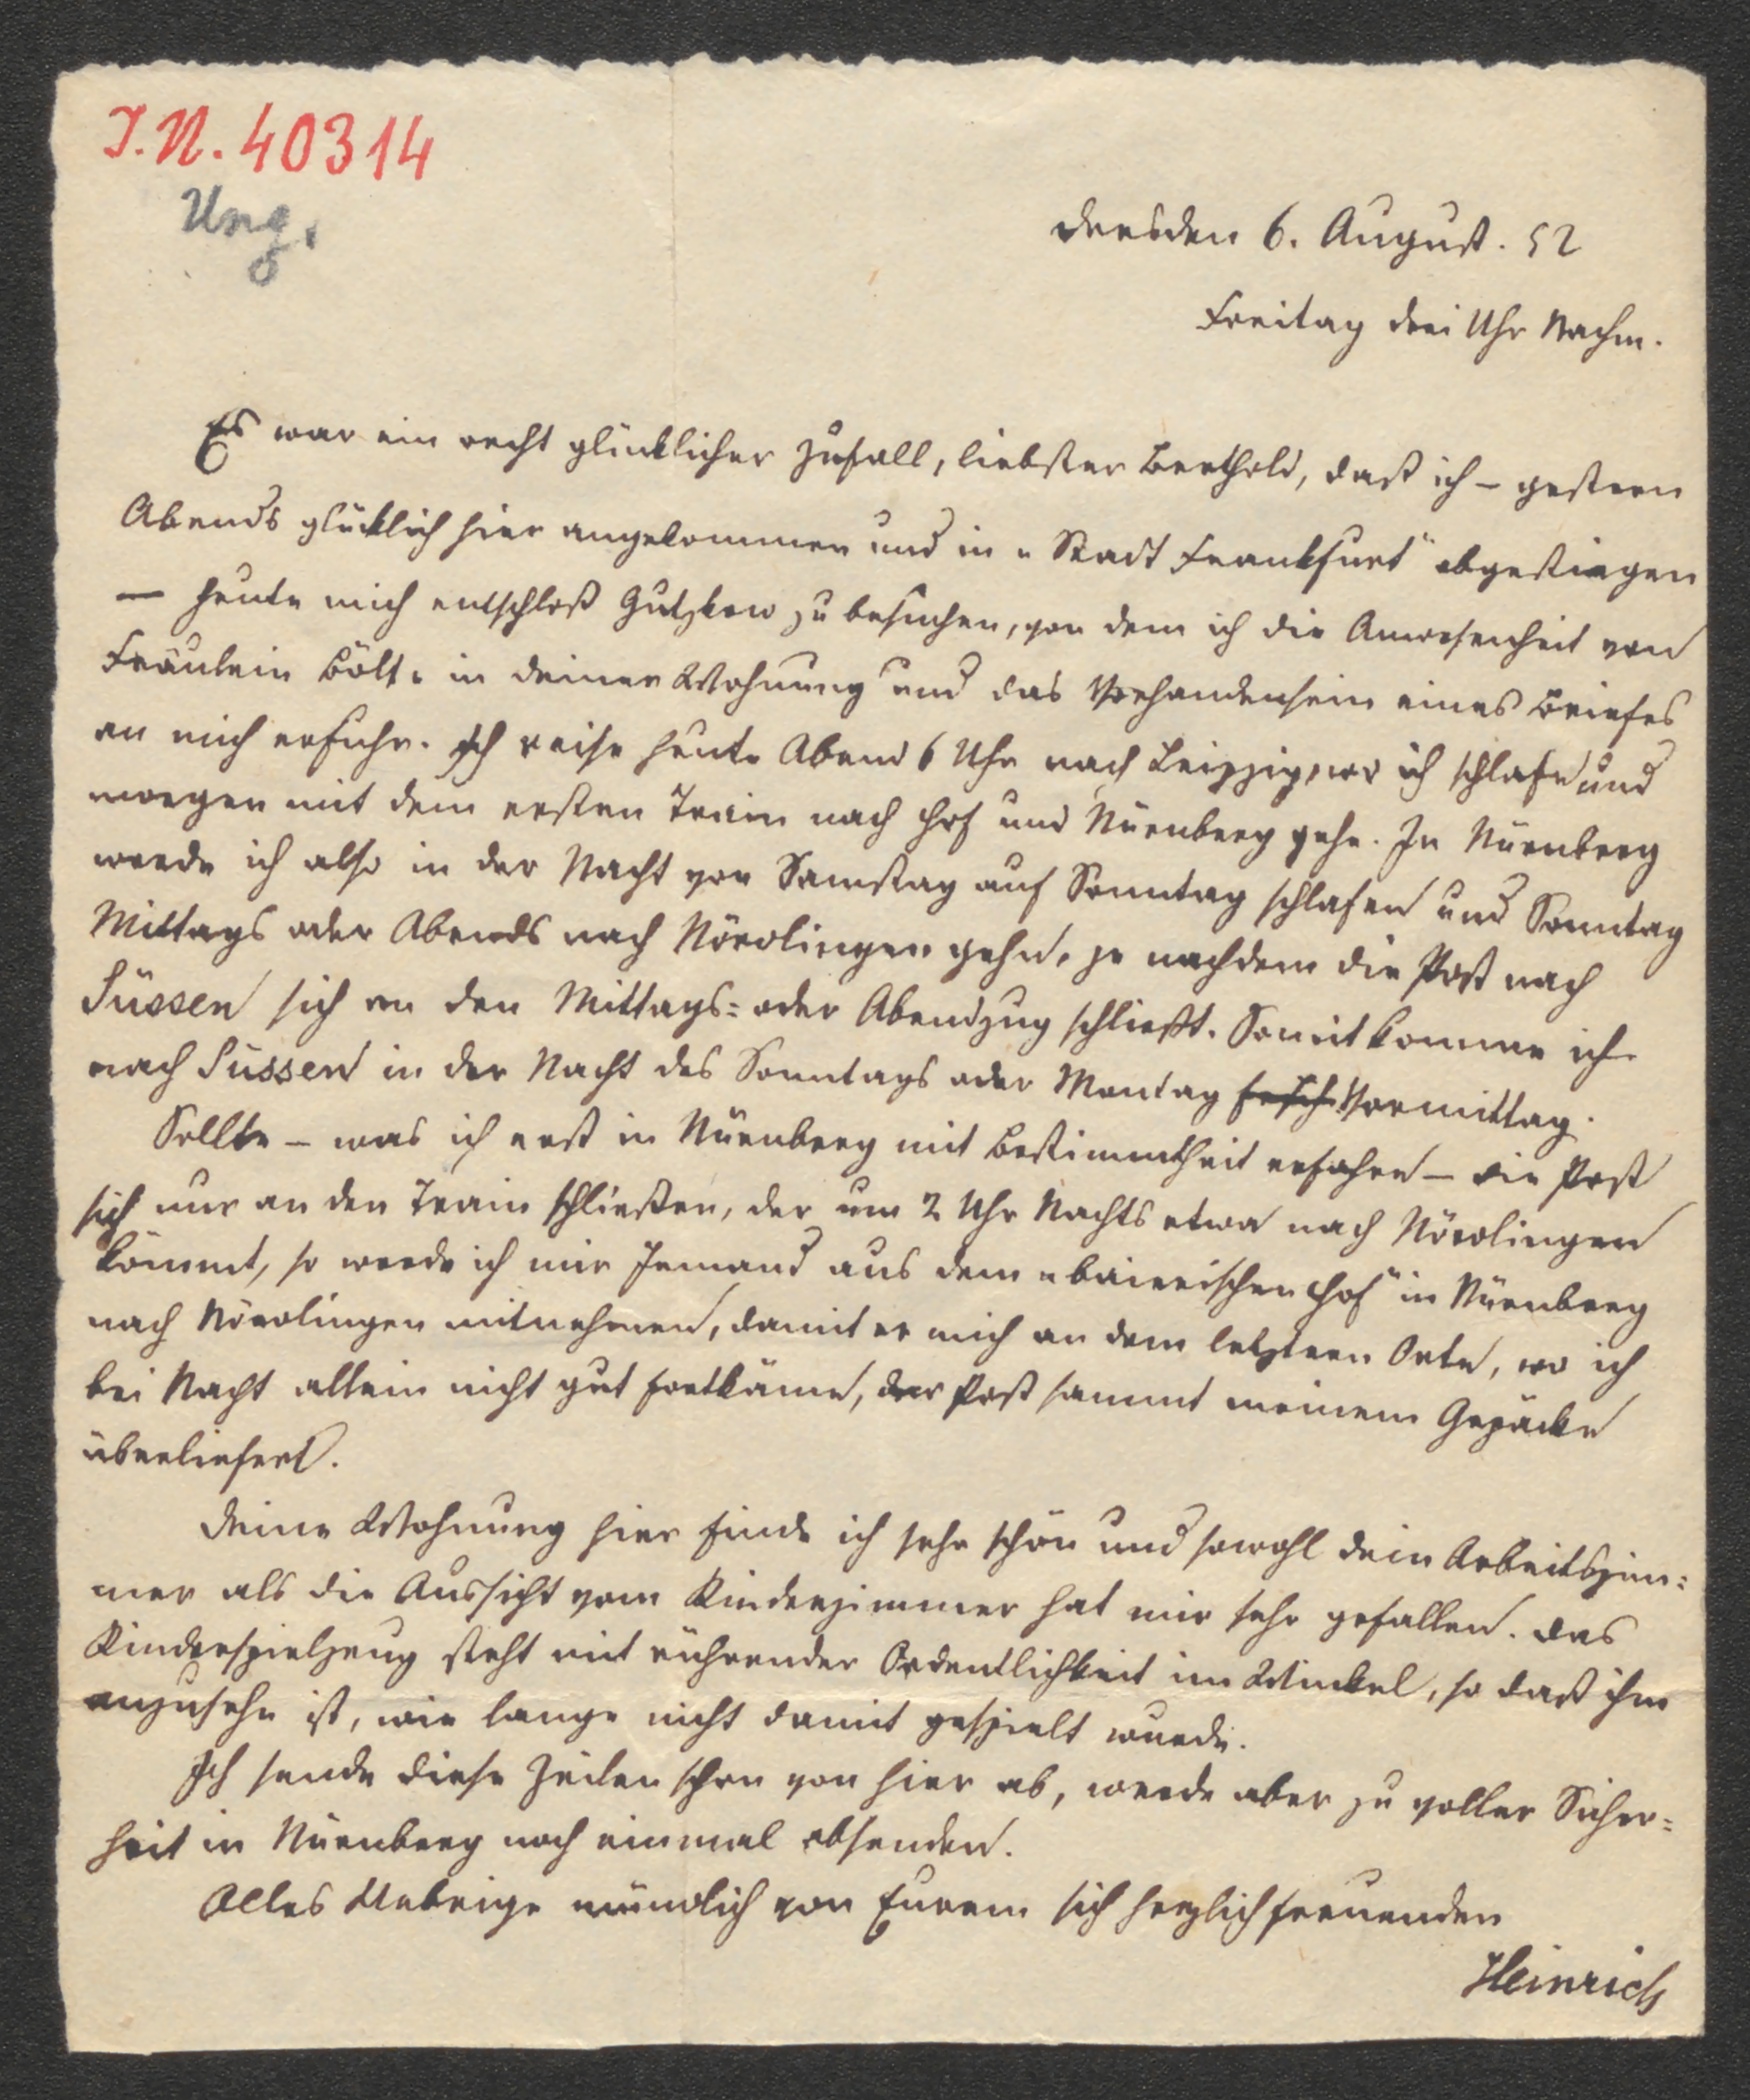 J.N. 40314
Ung.
Dresden 6. August. 52
Freitag drei Uhr Nachm.
Es war ein recht glücklicher Zufall, liebster Berthold, daß ich – gestern
Abends glücklich hier angekommen und in „Stadt Frankfurt“ abgestiegen
— heute mich entschloß Gutzkow zu besuchen, von dem ich die Anwesenheit von
Fräulein Bölte in Deiner Wohnung und das Vorhandensein eines Briefes
an mich erfuhr. Ich reise heute Abend 6 Uhr nach Leipzig, wo ich schlafe und
morgen mit dem ersten Train nach Hof und Nürnberg gehe. In Nürnberg
werde ich also in der Nacht von Samstag auf Sonntag schlafen und Sonntag
Mittags oder Abends nach Nördlingen gehn, je nachdem die Post nach
Süssen sich an den Mittags= oder Abendzug schließt. Somit komme ich
nach Süssen in der Nacht des Sonntags oder Montag früh Vormittag.
Sollte – was ich erst in Nürnberg mit Bestimmtheit erfahre – die Post
sich nur an den Train schließen, der um 2 Uhr Nachts etwa nach Nördlingen
kömmt, so werde ich mir Jemand aus dem „bairischen Hof“ in Nürnberg
nach Nördlingen mitnehmen, damit er mich an dem letztern Orte, wo ich
bei Nacht allein nicht gut fortkäme, der Post sammt meinem Gepäcke
überliefert.
Deine Wohnung hier finde ich sehr schön und sowohl Dein Arbeitszim=
mer als die Aussicht vom Kinderzimmer hat mir sehr gefallen. Das
Kinderspielzeug steht mit rührender Ordentlichkeit im Winkel, so daß ihm
anzusehn ist, wie lange nicht damit gespielt wurde.
Ich sende diese Zeilen schon von hier ab, werde aber zu voller Sicher=
heit in Nürnberg noch einmal absenden.
Alles Uebrige mündlich von Eurem sich herzlich freuenden
Heinrich